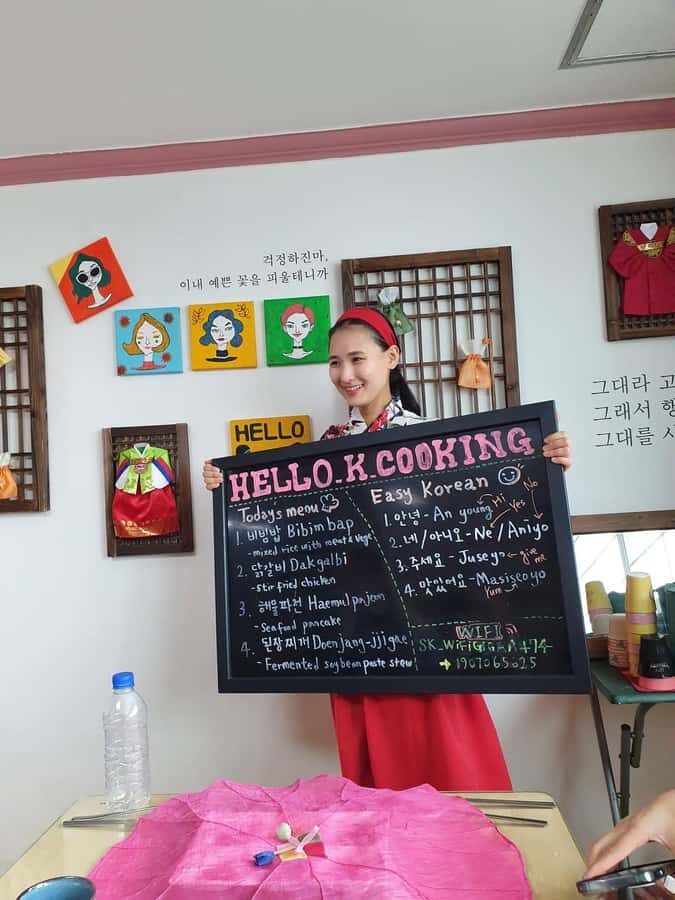 걱정하진마,
이내 예쁜 꽃을 피울테니까
HELLO
그대라 고
그래서 행
그대를 사
HELLO_K_COOKING
Today's menu
1. 비빔밥 Bibimbap
- mixed rice with meat & vege
2. 닭갈비 Dakgalbi
- stir fried chicken
3. 해물파전 Haemul pajeon
- Seafood pancake
4. 된장찌개 Doenjang-jjigae
- Fermented soy bean paste stew
Easy Korean
Hi
No
Yes
1. 안녕 - An young
2. 네/아니요 - Ne/Aniyo
3. 주세요 - Juseyo
give me
4. 맛있어요 - Masisseoyo
Yum
WIFI
1907065625